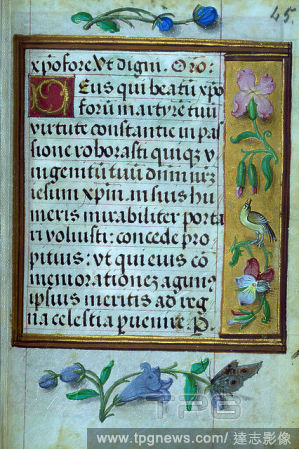 45.
xpõ fore Ut digni. Orō:
Deus qui beatū xpo
forū martyrē tuū
virtute constantie in pas
sione roborasti quiq; v
nigenitū tuū dnm nrz
iesum xpm. in suis hu
meris mirabiliter porta
ri voluisti: concede pro
pitius: vt qui eius cō
memorationez agimꝰ
ipsius meritis ad reg
na celestia puenire. P
TPG
www.tpgnews.com/ 達志影像